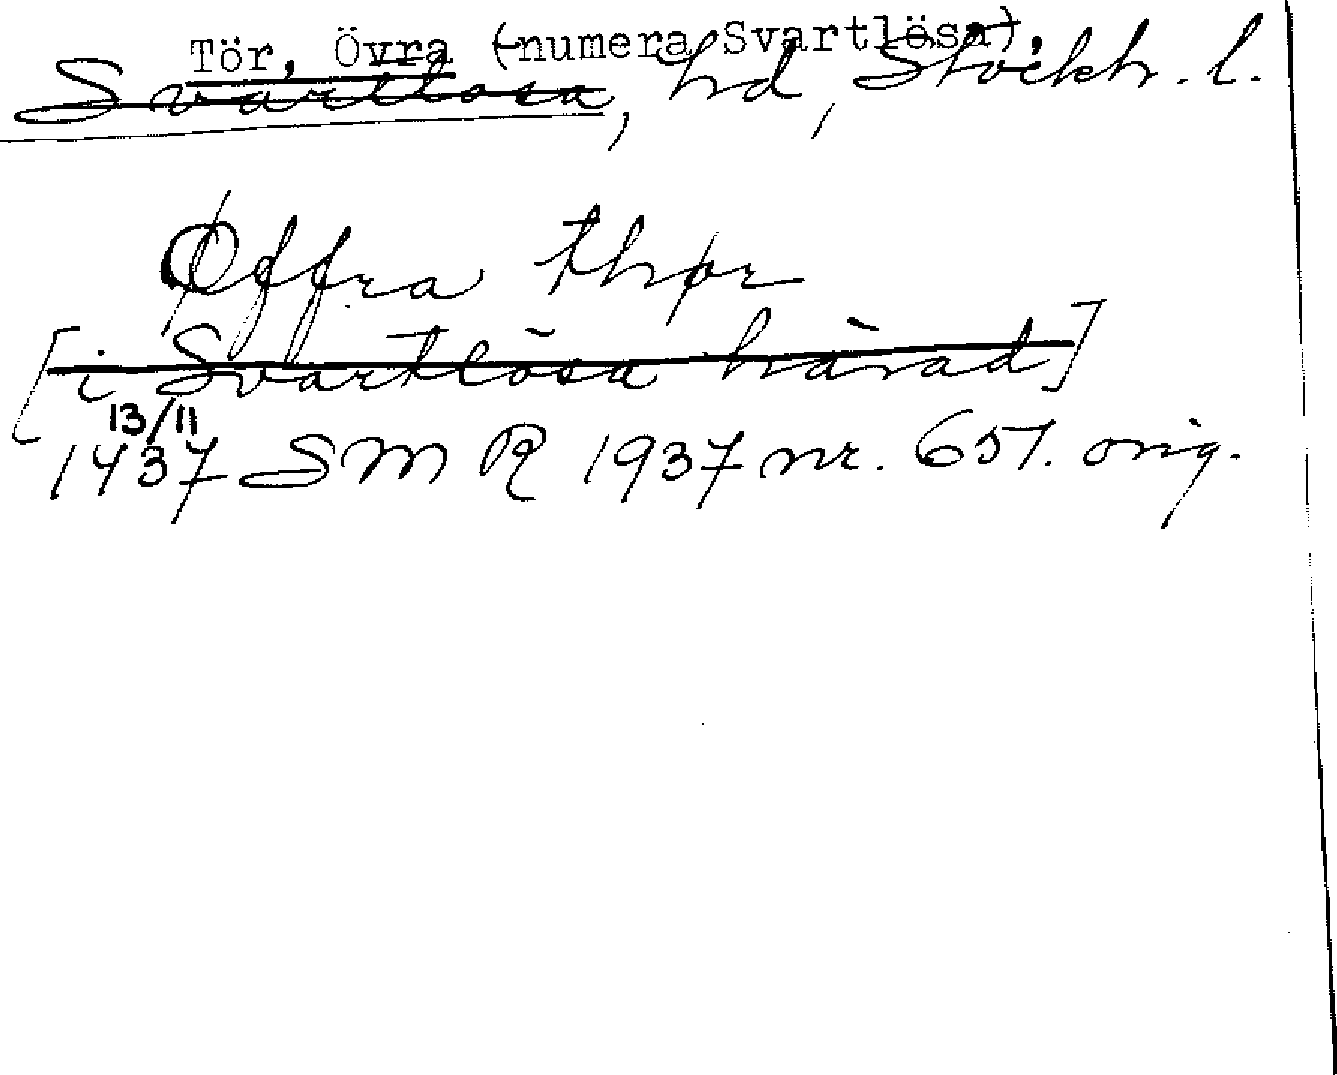 Tör, Övra (numera Svartlösa),
Svartlösa, hd, Stockh. l.
Øffra thør
[i Svartlösa härad]
13/11
1437 SMR 1937 nr. 651. orig.